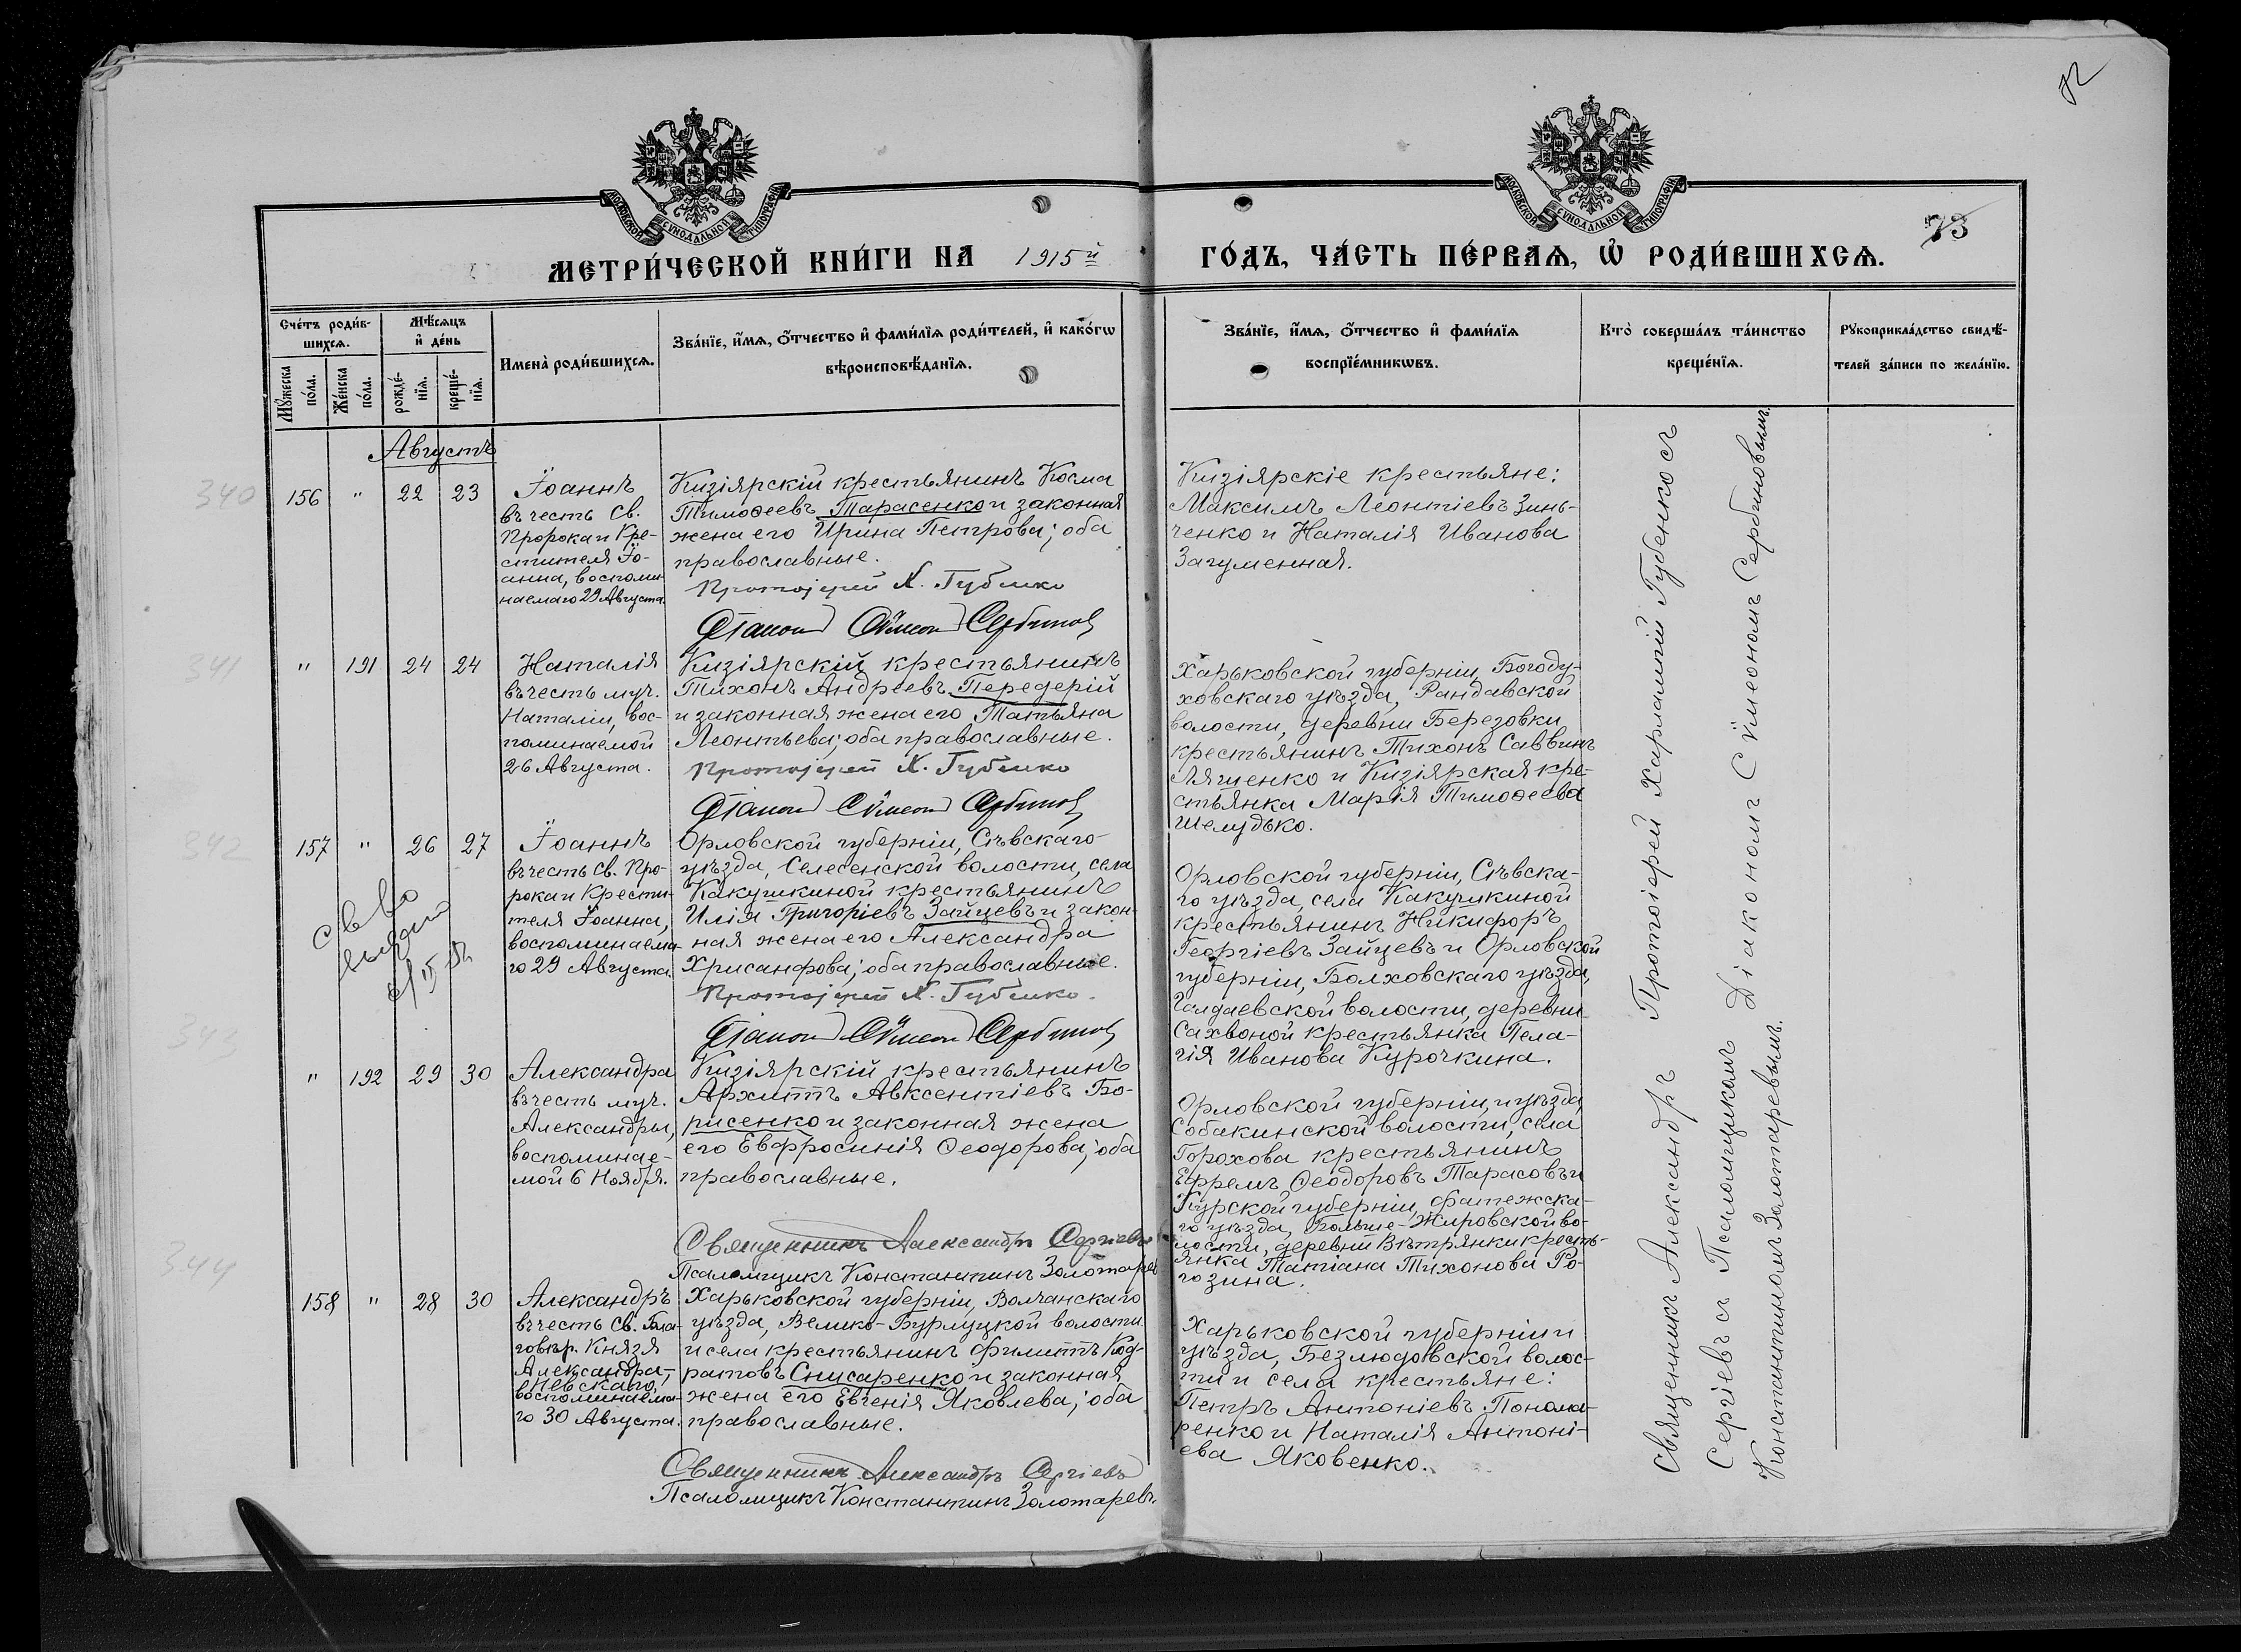 МОСКОВСКОЙ СѴНОДАЛЬНОЙ ТИПОГРАФІИ
МОСКОВСКОЙ СѴНОДАЛЬНОЙ ТИПОГРАФІИ
73
МЕТРИ́ЧЕСКОЙ КНИ́ГИ НА 1915й ГО́ДЪ, ЧА́СТЬ ПЕ́РВАѦ, Ѽ РОДИ́ВШИХСѦ.
Сче́тъ роди́в-
шихсѧ.
Мꙋ́жеска по́ла.
Же́нска по́ла.
Мѣ́сѧцъ и҆ де́нь
рожде́-нїѧ.
креще́-нїѧ.
Имена̀ роди́вшихсѧ.
Зва́нїе, и҆́мѧ, ѻ҆́тчество и҆ фами́лїѧ роди́телей, и҆ како́гѡ
вѣроисповѣ́данїѧ.
Зва́нїе, и҆́мѧ, ѻ҆́тчество и҆ фами́лїѧ
воспрїе́мникѡвъ.
Кто̀ соверша́лъ та́инство
креще́нїѧ.
Рꙋкоприкла́дство свидѣ́-
телей за́писи по жела́нїю.
Августъ
340
156 " 22 23
Іоаннъ
въ честь Св.
Пророка и Кре-
стителя Іо-
анна, воспоми-
наемаго 29 Августа.
Кизіярскій крестьянинъ Косма
Тимоѳеевъ Тарасенко и законная
жена его Ирина Петрова; оба
православные.
Протоіерей Х. Губенко
Діаконъ Сѵмеонъ Сербиновъ
Кизіярскіе крестьяне:
Максимъ Леонтіевъ Зинь-
ченко и Наталія Иванова
Загуменная.
341
" 191 24 24
Наталія
въ честь муч.
Наталіи, вос-
поминаемой
26 Августа.
Кизіярскій крестьянинъ
Тихонъ Андреевъ Передерій
и законная жена его Татьяна
Леонтьева; оба православные.
Протоіерей Х. Губенко
Діаконъ Сѵмеонъ Сербиновъ
Харьковской губерніи, Богоду-
ховскаго уѣзда, Рандавской
волости, деревни Березовки,
крестьянинъ Тихонъ Саввинъ
Лященко и Кизіярская кре-
стьянка Марія Тимоѳеева
Шелудько.
342
157 " 26 27
св во
выдано
Іоаннъ
въ честь Св. Про-
рока и Крести-
теля Іоанна,
воспоминаема-
го 29 Августа.
Орловской губерніи, Сѣвскаго
уѣзда, Селесенской волости, села
Какушкиной крестьянинъ
Илія Григоріевъ Зайцевъ и закон-
ная жена его Александра
Хрисанфова; оба православные.
Протоіерей Х. Губенко.
Діаконъ Сѵмеонъ Сербиновъ
Орловской губерніи, Сѣвска-
го уѣзда, села Какушкиной
крестьянинъ Никифоръ
Георгіевъ Зайцевъ и Орловской
губерніи, Болховскаго уѣзда,
Голдаевской волости, деревни
Сахвоной крестьянка Пела-
гія Иванова Курочкина.
343
" 192 29 30
Александра
въ честь муч.
Александры,
воспоминае-
мой 6 Ноября.
Кизіярскій крестьянинъ
Архиппъ Авксентіевъ Бо-
рисенко и законная жена
его Евфросинія Ѳеодорова; оба
православные.
Священникъ Александръ Сергіевъ
Псаломщикъ Константинъ Золотарев
Орловской губерніи, и уѣзда,
Собакинской волости, села
Горохова крестьянинъ
Ефремъ Ѳеодоровъ Тарасовъ и
Курской губерніи, Фатежска-
го уѣзда, Больше-Жировской во-
лости, деревни Вѣтрянки кресть-
янка Татіана Тихонова Ро-
гозина.
344
158 " 28 30
Александръ
въ честь Св. Бла-
говѣр. Князя
Александра-
Невскаго,
воспоминаема-
го 30 Августа.
Харьковской губерніи, Волчанскаго
уѣзда, Велико-Бурлуцкой волости
и села крестьянинъ Филиппъ Код-
ратовъ Снисаренко и законная
жена его Евгенія Яковлева; оба
православные.
Священникъ Александръ Сергіевъ
Псаломщикъ Константинъ Золотаревъ.
Харьковской губерніи и
уѣзда, Безлюдовской волос-
ти и села крестьяне:
Петръ Антоніевъ Понома-
ренко и Наталія Антоні-
ева Яковенко.
Протоіерей Харлампій Губенко съ
Діакономъ Сѵмеономъ Сербиновымъ.
Священникъ Александръ
Сергіевъ съ Псаломщикомъ
Константиномъ Золотаревымъ.